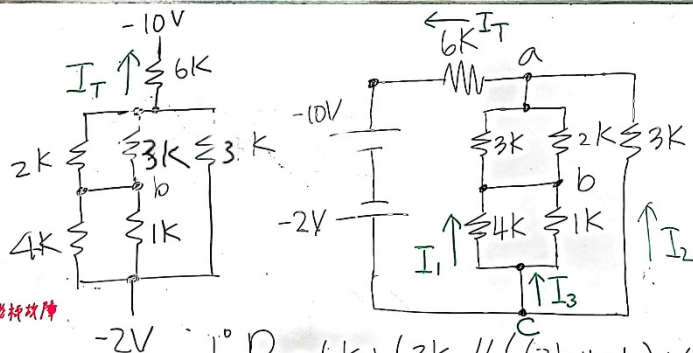 -10V
I_T
6K
2K
3K
3.K
b
4K
1K
-2V
I_T
6K
a
-10V
3K
2K
3K
b
-2V
4K
1K
I_1
I_2
I_3
C
故障
1°